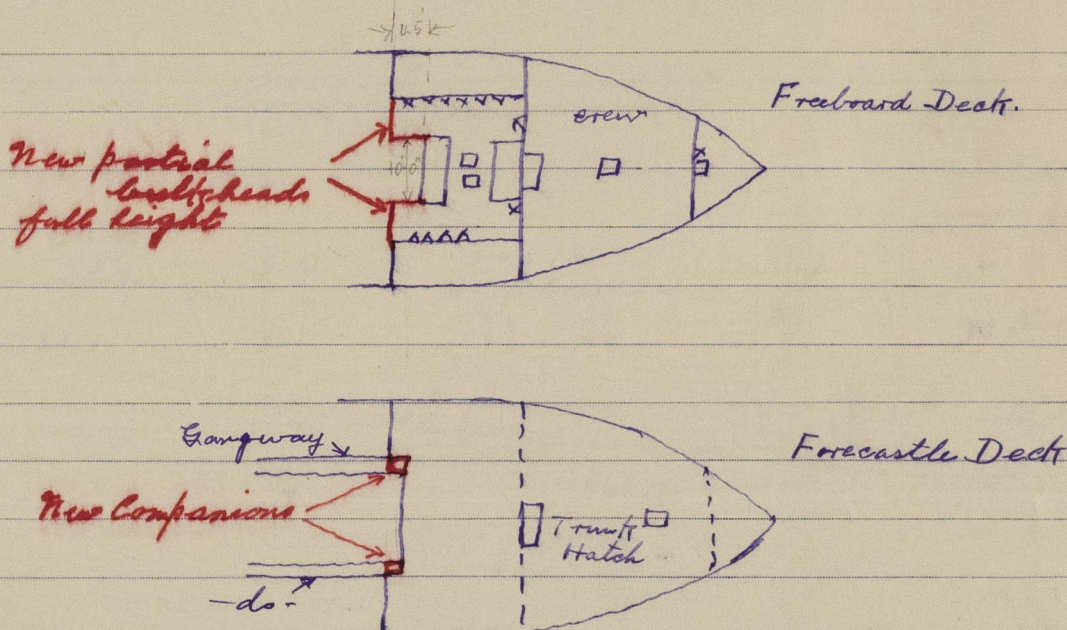 Freeboard Deck.
crew
New partial
bulkheads
full height
10'0"
Gangway
Forecastle Deck
New Companions
Trunk
Hatch
-do-